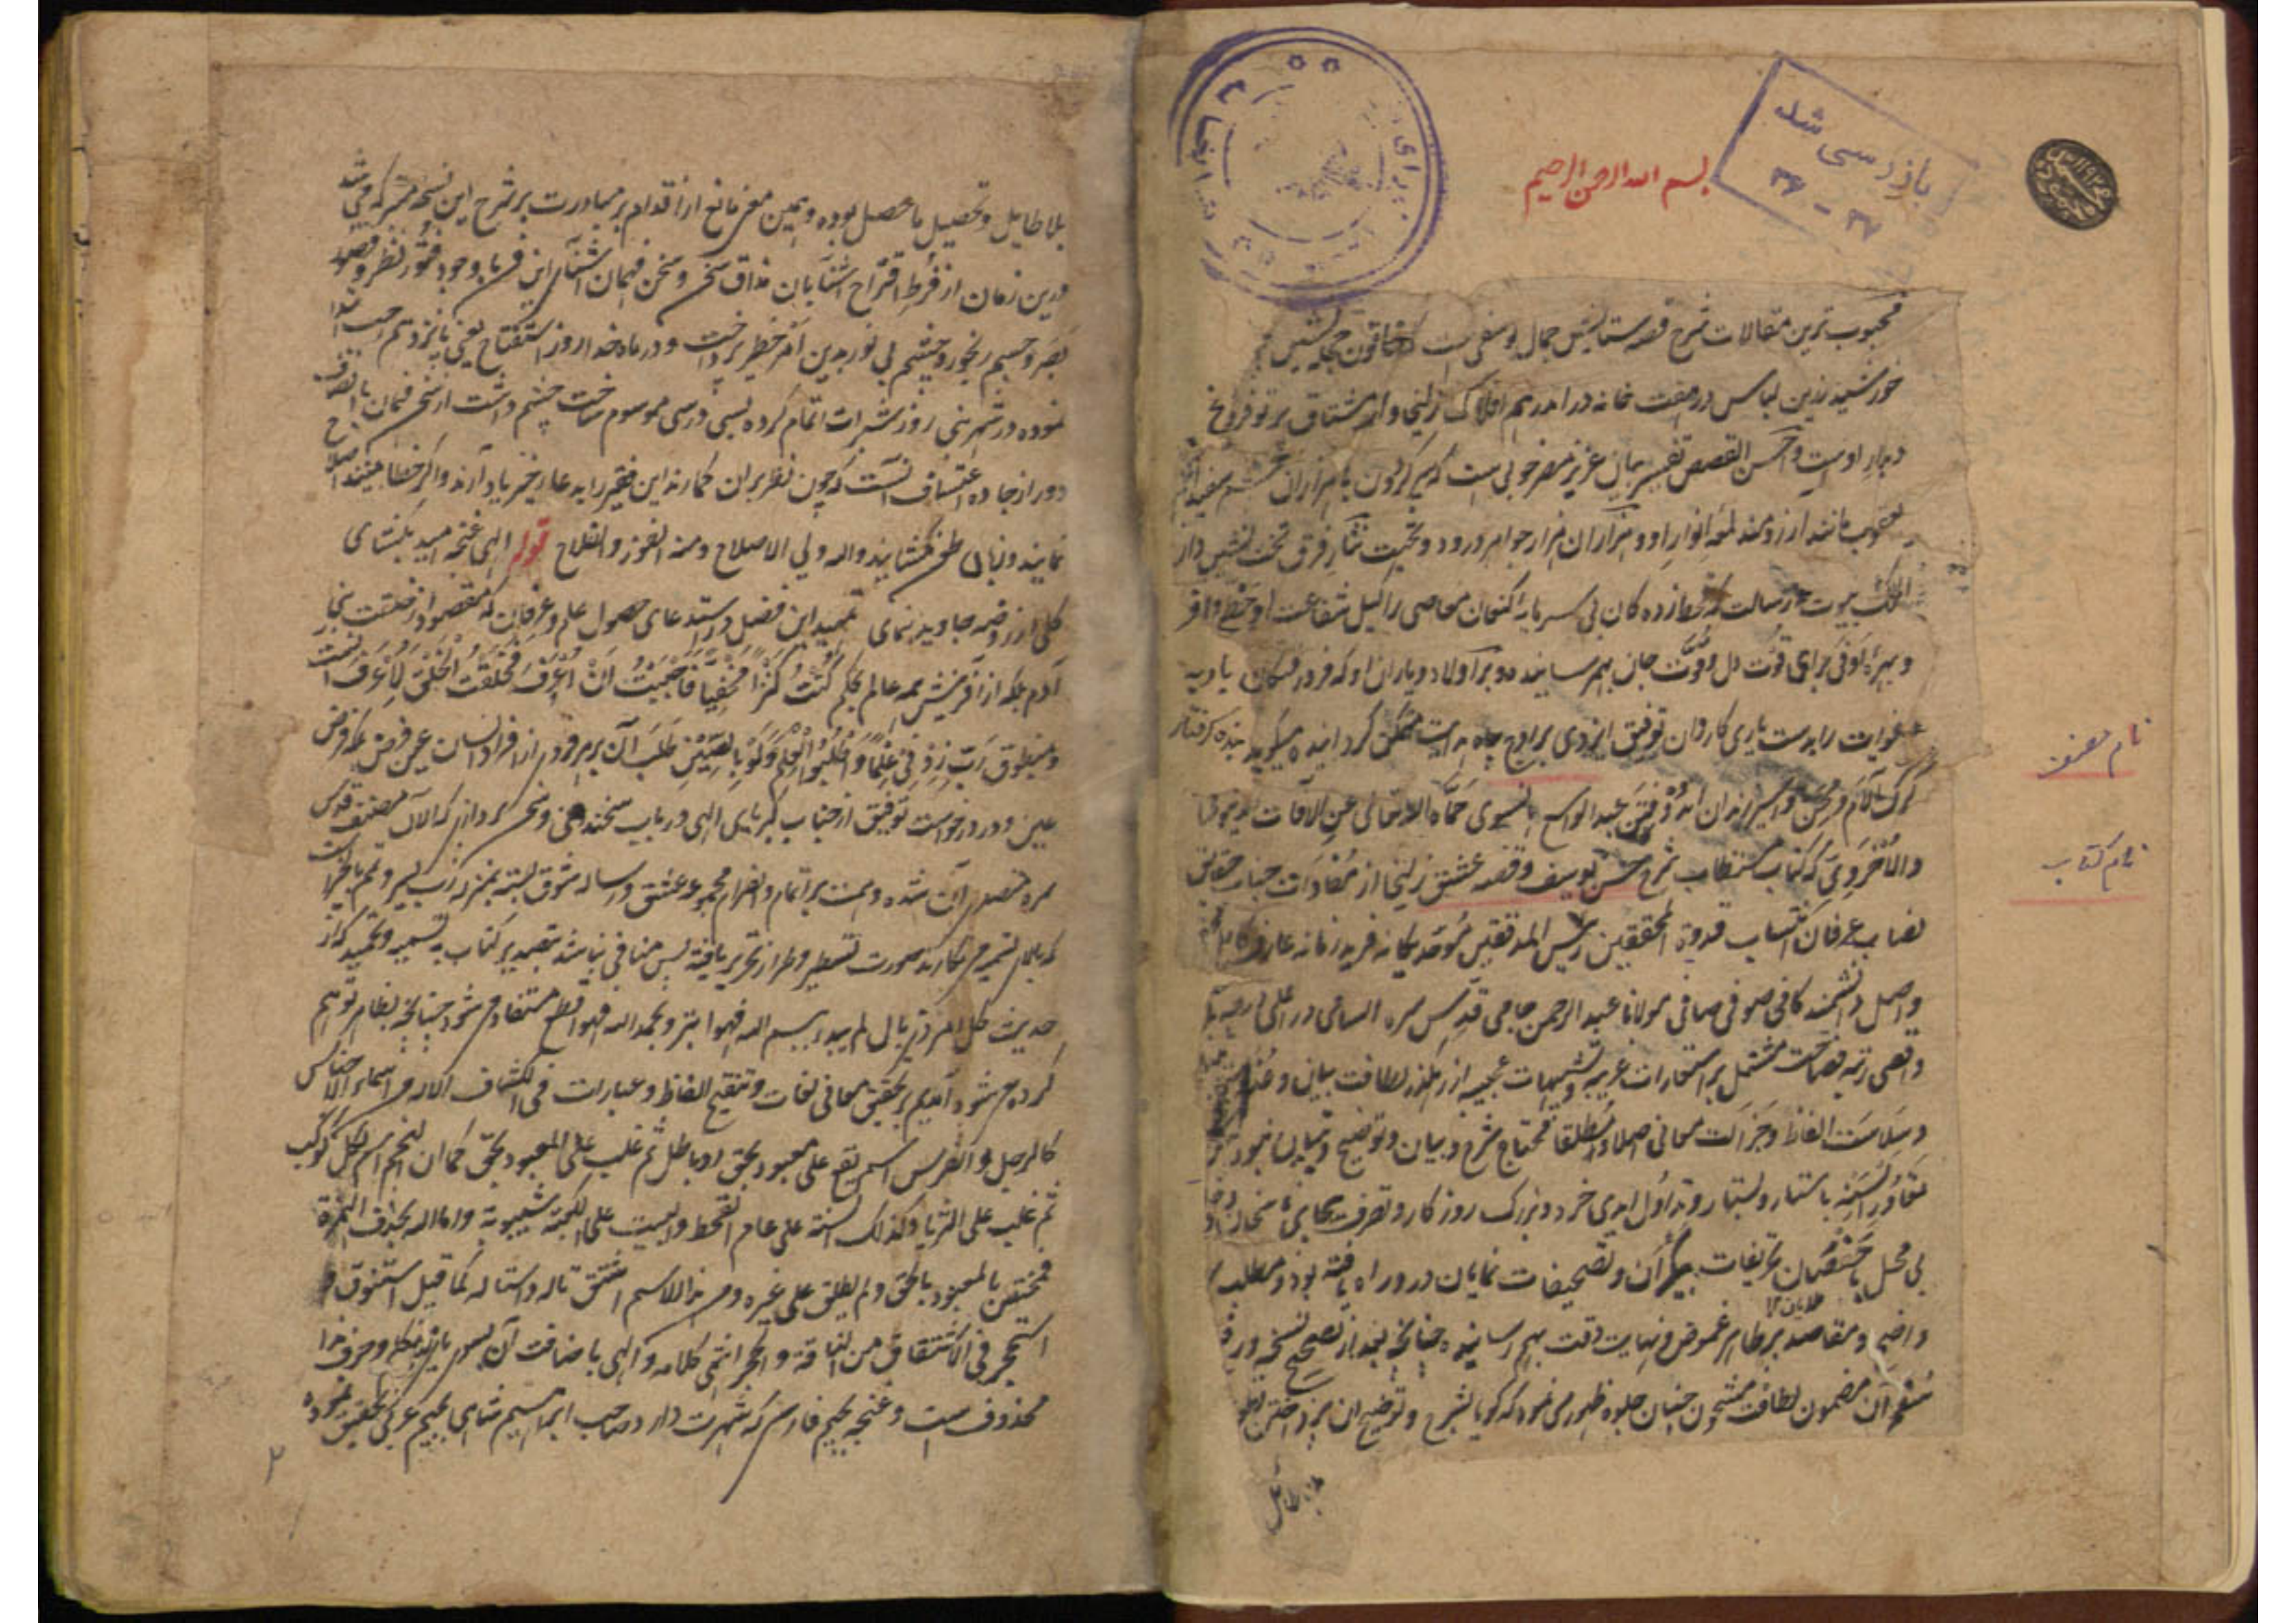 بسم الله الرحمن الرحیم
بازرسی شد
۳۶ - ۳۷
محبوب ترین مقالات شرح قصه ستایش جمال یوسفی است که خاتون حجله نشین
خورشید زرین لباس در هفت خانه در اندر هم افلاک زلیخا وار مشتاق پرتو فروغ
دیدار اوست و احسن القصص تفسیر بیان عزیز مصر خوبی است که پیر گردون با هزاران چشم سفید
یعقوب مانند آرزومند لمعه انوار او و هزاران هزار جواهر درود و تحیت نثار فرق تخت نشین دار
الملک نبوت و رسالت که قحط زده کان بی سرمایه کنعان معاصی را کیل شفاعت او حظ وافر
و بهره اوفی برای قوت دل و قوت جان بهم رسانیده و بر آل و اولاد و یاران او که فرو رفتگان بادیه
غوایت را بدست یاری کاروان توفیق ایزدی بر اوج جاه هدایت متمکن گردانیده میگوید بنده گرفتار
گرگ آلام و محن و اسیر زندان عبد الواسع هانسوی حماه الله تعالی عن الآفات
نام مصنف
والاخروی که کتاب مستطاب شرح حسن یوسف و قصه عشق زلیخا از مفادات جناب حقایق
نام کتاب
نصاب عرفان اکتساب قدوة المحققین رئیس المدققین موحد یگانه فرید زمانه عارف
واصل دانشمند کافی صوفی صافی مولانا عبد الرحمن جامی قدس سره السامی در اعلی درجه
و اقصی رتبه فصاحت مشتمل بر استعارات غریبه و تشبیهات عجیبه از رهگذر لطافت بیان و
و سلاست الفاظ و جزالت معانی اصلا و مطلقا محتاج شرح و بیان و توضیح و تبیان نبود
باشتهار و تداول ایدی خرد و بزرگ روزگار و تصرف بیجای
بی محل تحریفات بیکران و تصحیفات نمایان درو راه یافته بود و مطلب
طالبان
واضح و مقاصد بر ظاهر غموض و نهایت دقت بهم رسانیده چنانچه بعد از تصحیح نسخه در
شعر آن مضمون لطافت مشحون چنان جلوه ظهور می نمود که گویا بشرح و توضیح آن پرداختن
بلا طایل
بلا طایل و تحصیل حاصل بوده و همین معنی مانع از اقدام بر مبادرت بر شرح این نسخه متبرکه می شد
درین زمان از فرط اقتراح آشنایان مذاق سخن و سخن فهمان آشنای این فن با وجود فتور نظر و قصور
بصر و جسم رنجور و چشم بی نور بدین امر خطیر پرداخت و در ماه خدا روز استفتاح یعنی پانزدهم رجب ابتدا
نموده در شهر نبی روز شبرات اتمام کرده ساخت چشم داشت از سخن فهمان با انصاف
دور از جاده اعتساف آنست که چون نظر بران گمارند این فقیر را بدعای خیر یاد آرند و اگر خطا بینند اصلاح
نمایند و زبان طعن نگشایند والله ولی الاصلاح ومنه الفوز والفلاح قوله الهی غنچه امید بگشای
گلی از روضه جاوید بنمای تمهید این فصل در استدعای حصول علم و عرفان که مقصود از خلقت بنی
آدم بلکه از آفرینش همه عالم بحکم کُنْتُ کَنْزًا مَخْفِیًّا فَاَحْبَبْتُ اَنْ اُعْرَفَ فَخَلَقْتُ الْخَلْقَ لِاُعْرَفَ آنست
و بمنطوق رَبِّ زِدْنِی عِلْمًا وَاطْلُبُوا الْعِلْمَ وَلَوْ بِالصِّینِ طلب آن بر هر فردی از افراد انسان عین فرض بلکه فرض
عین و در درخواست توفیق از جناب کبریای الهی در باب سخندانی و سخن پردازی که الآن مصنف قدس
سره متصدی آن شده و همت بر اتمام و انصرام مجموعه عشق و رساله شوق بسته
صورت تسطیر و طراز تحریر یافته پس منافی نباشد بتصدیر کتاب به تسمیه و تحمید که از
حدیث کل امر ذی بال لم یبدء ببسم الله فهو ابتر و بحمد الله فهو اقطع مستفاد می شود چنانچه بظاهر توهم
کرده می شود آمدیم بر تحقیق معانی لغات و تنقیح الفاظ و عبارات فی الکشاف الاله من اسماء الاجناس
کالرجل و الفرس اسم یقع علی معبود بحق او باطل ثم غلب علی المعبود بحق کما ان النجم اسم لکل کوکب
ثم غلب علی الثریا وکذلک السنة علی عام القحط والبیت علی الکعبة واما الله بحذف الهمزة
فمختص بالمعبود بالحق ولم یطلق علی غیره ومن هذا الاسم اشتق تاله واستاله کما قیل استنوق و
استحجر فی الاشتقاق من الناقة والحجر انتهی کلامه و الهی باضافت آن بسوی یای متکلم و حرف ندا
محذوف است و غنچه بجیم فارسی که شهرت دارد صاحب ابراهیم شاهی بجیم عربی تحقیق نموده
۲